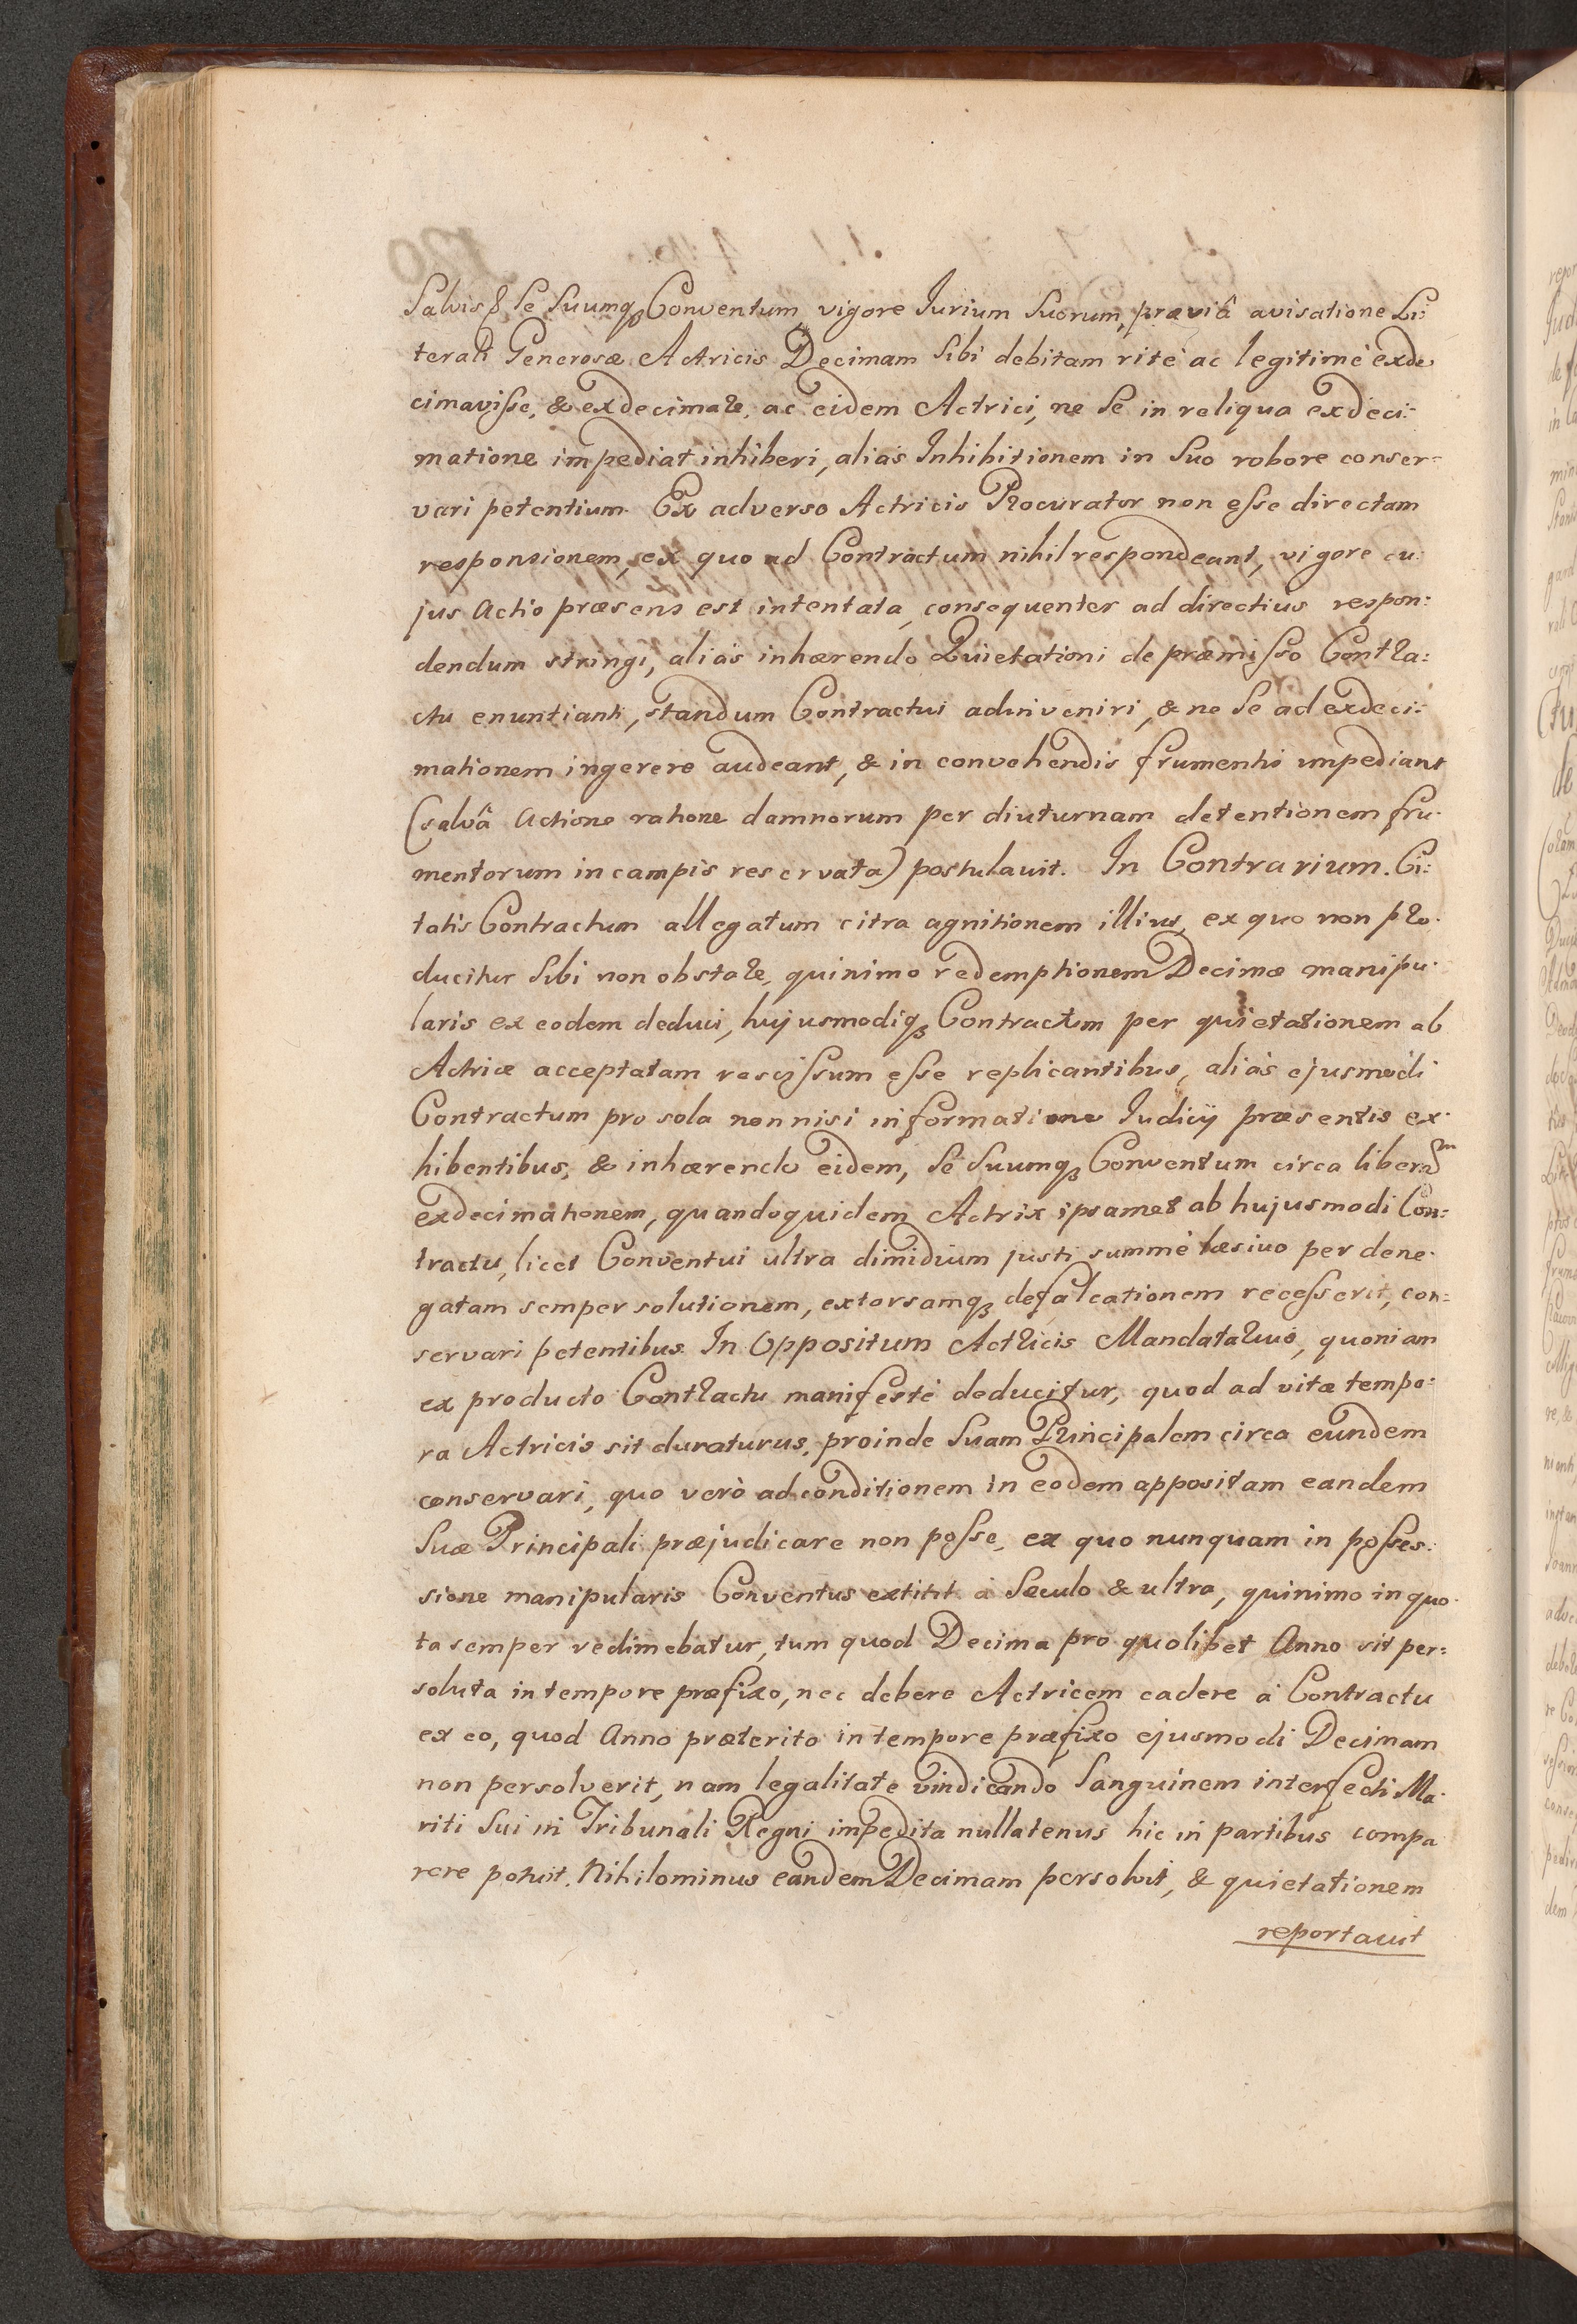 Salvis & Se Suumq₃ Conventum vigore Iurium Suorum, præviâ avisatione Li:
terali Generosæ Actricis Decimam Sibi debitam ritè ac legitimè exde
cimavisse, & exdecimare, ac eidem Actrici, ne Se in reliqua exdeci:
matione impediat inhiberi, aliàs Inhibitionem in Suo robore conser=
vari petentium. Ex adverso Actricis Procurator non esse directam
responsionem, ex quo ad Contractum nihil respondeant, vigore cu:
jus Actio præsens est intentata, consequenter ad directius respon:
dendum stringi, aliàs inhærendo Quietationi de præmisso Contra:
ctu enuntianti, standum Contractui adinveniri, & ne Se ad exdeci:
mationem ingerere audeant, & in convehendis frumentis impediant
(salvâ Actione ratione damnorum per diuturnam detentionem fru:
mentorum in campis reservata) postulavit. In Contrarium. Ci:
tatis Contractum allegatum citra agnitionem illius, ex quo non pro:
ducitur Sibi non obstare, quinimo redemptionem Decimæ manipu:
laris ex eodem deduci, hujusmodiq₃ Contractum per quietationem ab
Actrice acceptatam rescissum esse replicantibus, aliàs ejusmodi
Contractum pro sola nonnisi informatione Iudicij præsentis ex:
hibentibus, & inhærendo eidem, Se Suumq₃ Conventum circa libera͠m
exdecimationem, quandoquidem Actrix ipsamet ab hujusmodi Con:
tractu, licet Conventui ultra dimidium justi summè læsivo per dene:
gatam semper solutionem, extorsamq₃ defalcationem recesserit, con:
servari petentibus. In Oppositum Actricis Mandatarius, quoniam
ex producto Contractu manifestè deducitur, quod ad vitæ tempo:
ra Actricis sit duraturus, proinde Suam Principalem circa eundem
conservari, quo verò ad conditionem in eodem appositam eandem
Suæ Principali præjudicare non posse, ex quo nunquam in posses:
sione manipularis Conventus extitit à Sæculo & ultra, quinimo in quo:
ta semper redimebatur, tum quod Decima pro quolibet Anno sit per:
soluta in tempore præfixo, nec debere Actricem cadere à Contractu
ex eo, quod Anno præterito in tempore præfixo ejusmodi Decimam
non persolverit, nam legalitate vindicando Sanguinem interfecti Ma:
riti Sui in Tribunali Regni impedita nullatenus hic in partibus compa
rere potuit. Nihilominus eandem Decimam persolvit, & quietationem
reportavit